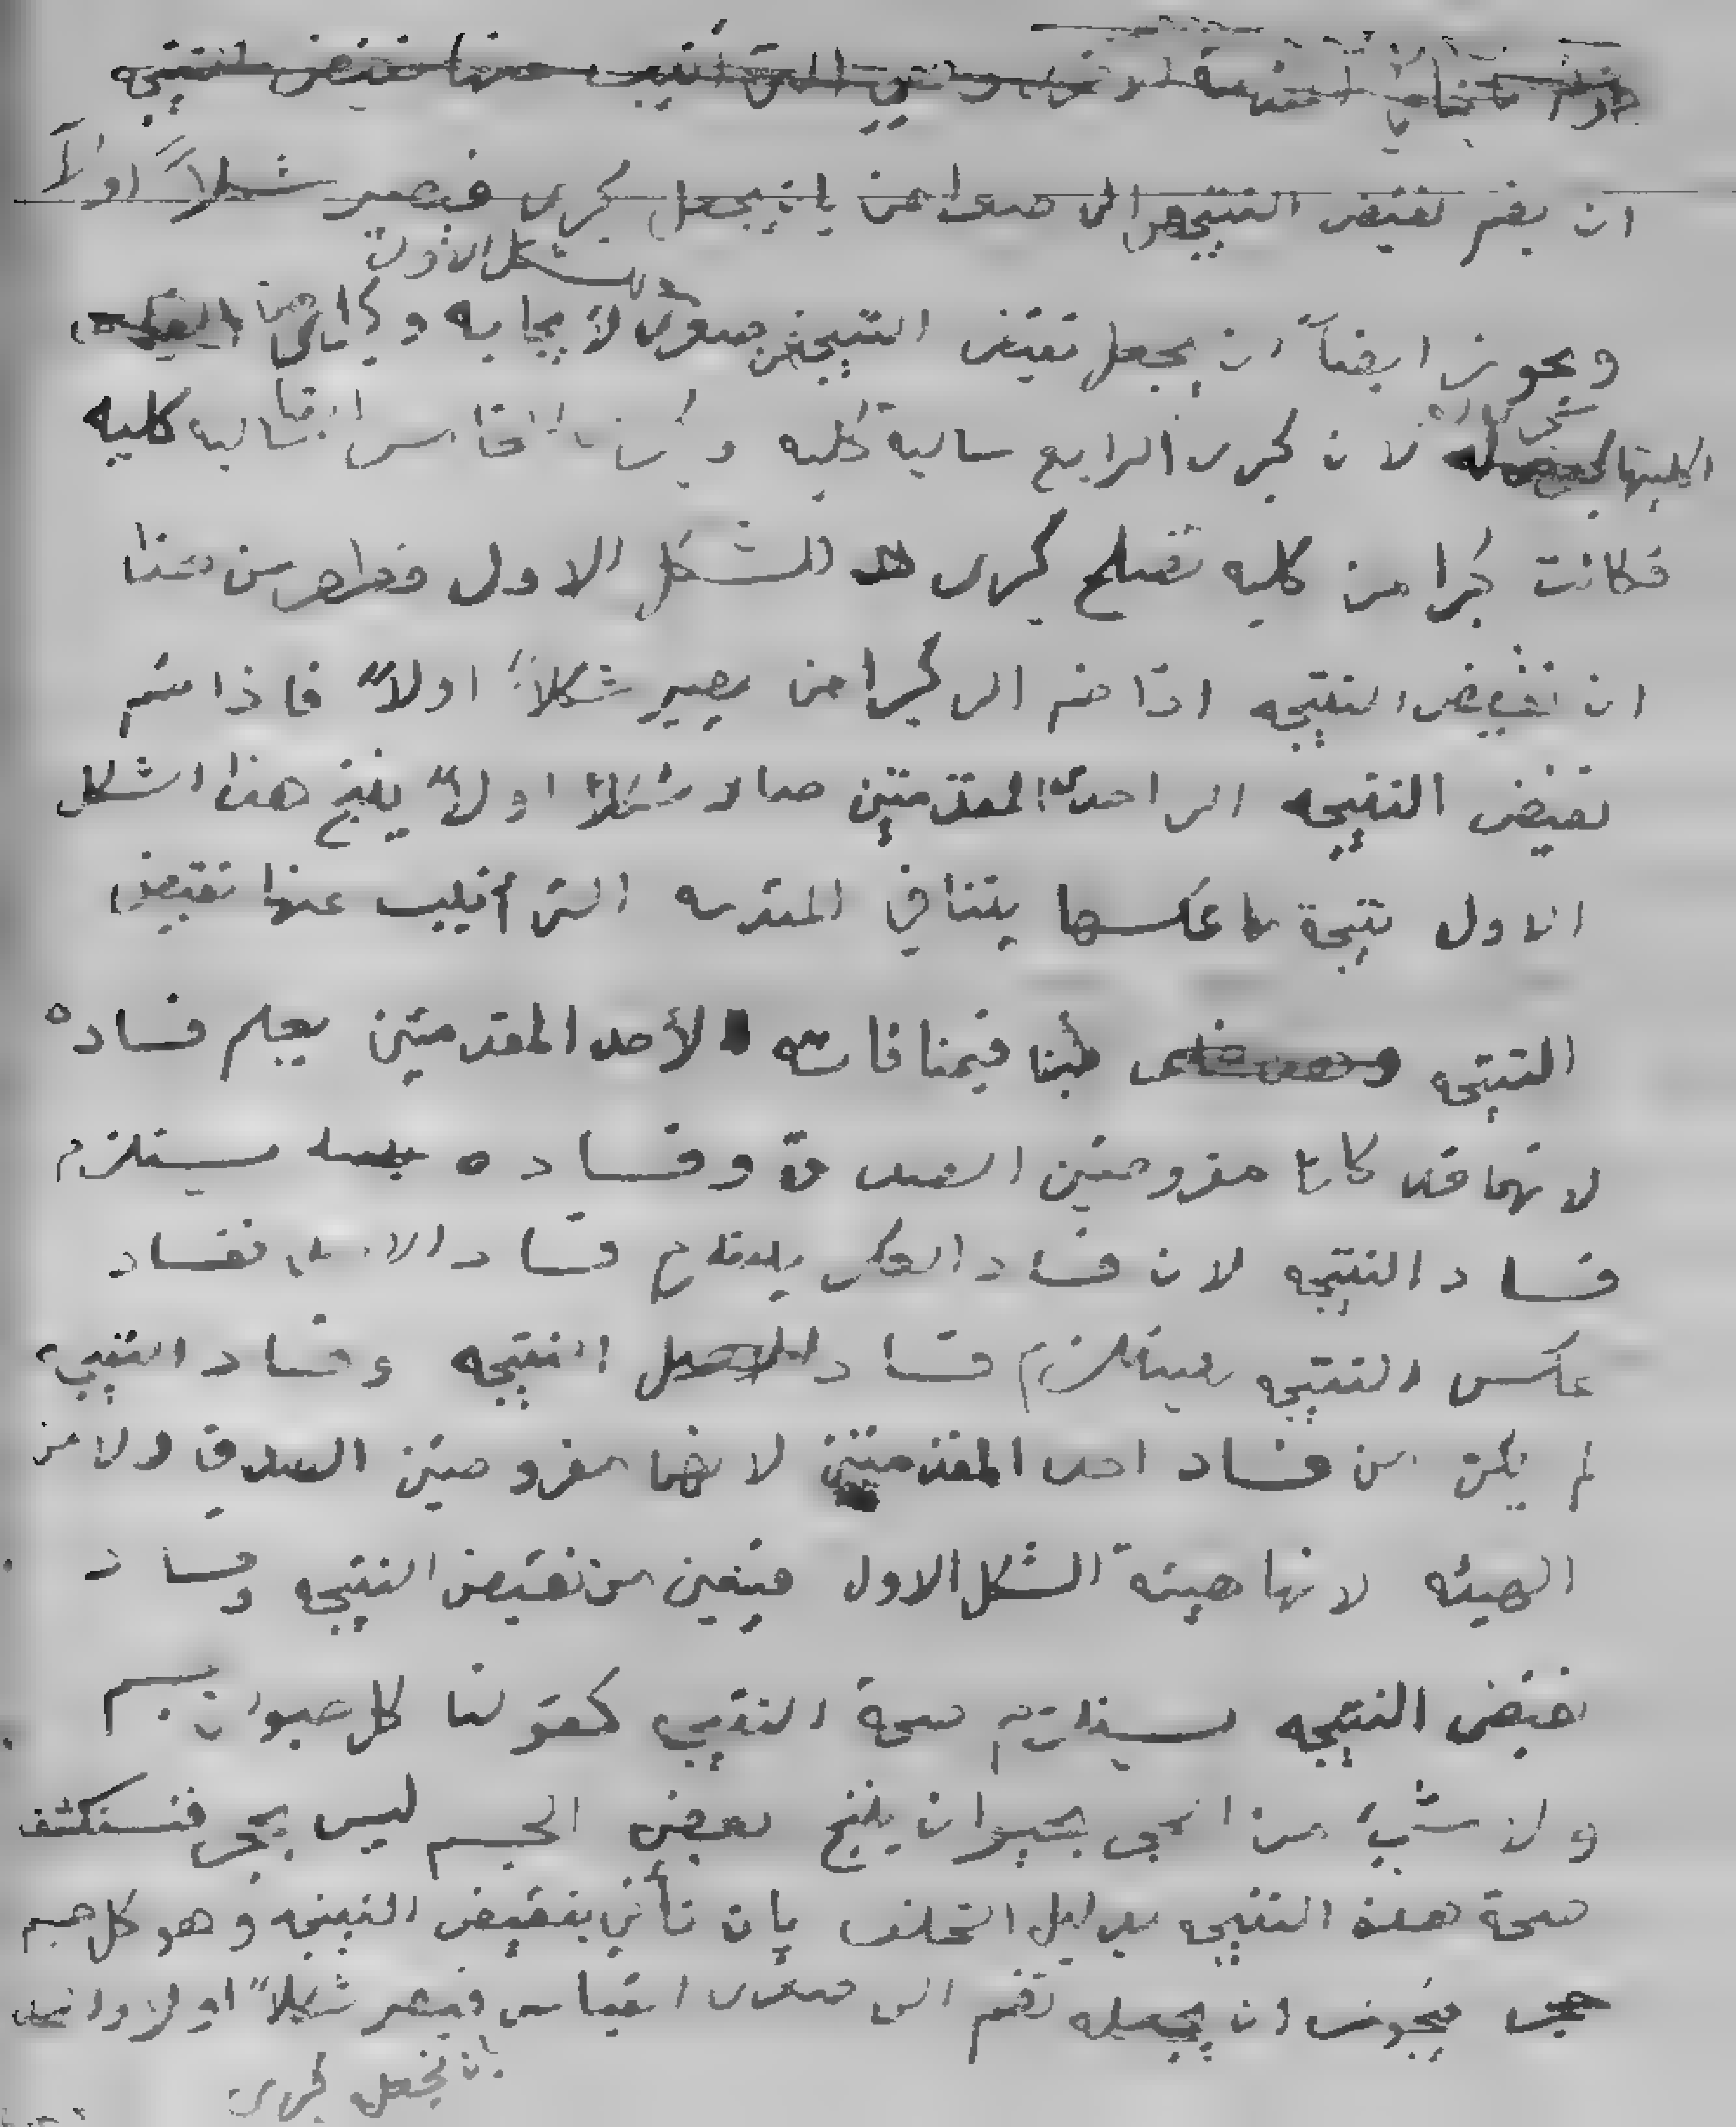 ان يضم نقيض النتيجة الى صغراهن بان يجعل كبرى فيصير شكلاً اولاً
للشكل الاول
ويجوز ايضاً ان يجعل نقيض النتيجة صغرى لايجابه وكبراهن
لكليتها لان كبرى الرابع سالبة كليه وكبرى الخامس ايضا سالبه كليه
فكانت كبراهن كليه تصلح كبرى للشكل الاول فظهر من هذا
ان نقيض النتيجه اذا ضم الى كبراهن يصير شكلاً اولاً فاذا ضم
نقيض النتيجه الى احدى المقدمتين صار شكلاً اولاً ينتج هذا الشكل
الاول نتيجة ما عكسها يتنافي المقدمه التى أنيب عنها نقيض
النتيجه فبمنافاته لأحد المقدمتين يعلم فساده
لانهما قد كانا مفروضتين الصدق وفساده يستلزم
فساد النتيجه لان فساد العكس يستلزم فساد الاصل ففساد
عكس النتيجه يستلزم فساد النتيجه وفساد النتيجه
لم يكن من فساد احد المقدمتين لانهما مفروضتين الصدق ولا من
الهيئه لانها هيئة الشكل الاول فيتعين من نقيض النتيجه وفساد
نقيض النتيجه يستلزم صحة النتيجه كقولنا كل حيوان جسم
ولا شيء من الحجر بحيوان ينتج بعض الجسم ليس بحجر فنستكشف
صحة هذه النتيجه بدليل الخلف بان نأتي بنقيض النتيجه وهو كل جسم
حجر فيجوز ان نضم الى صغرى القياس فيصير شكلاً اولا
بان نجعل كبرى